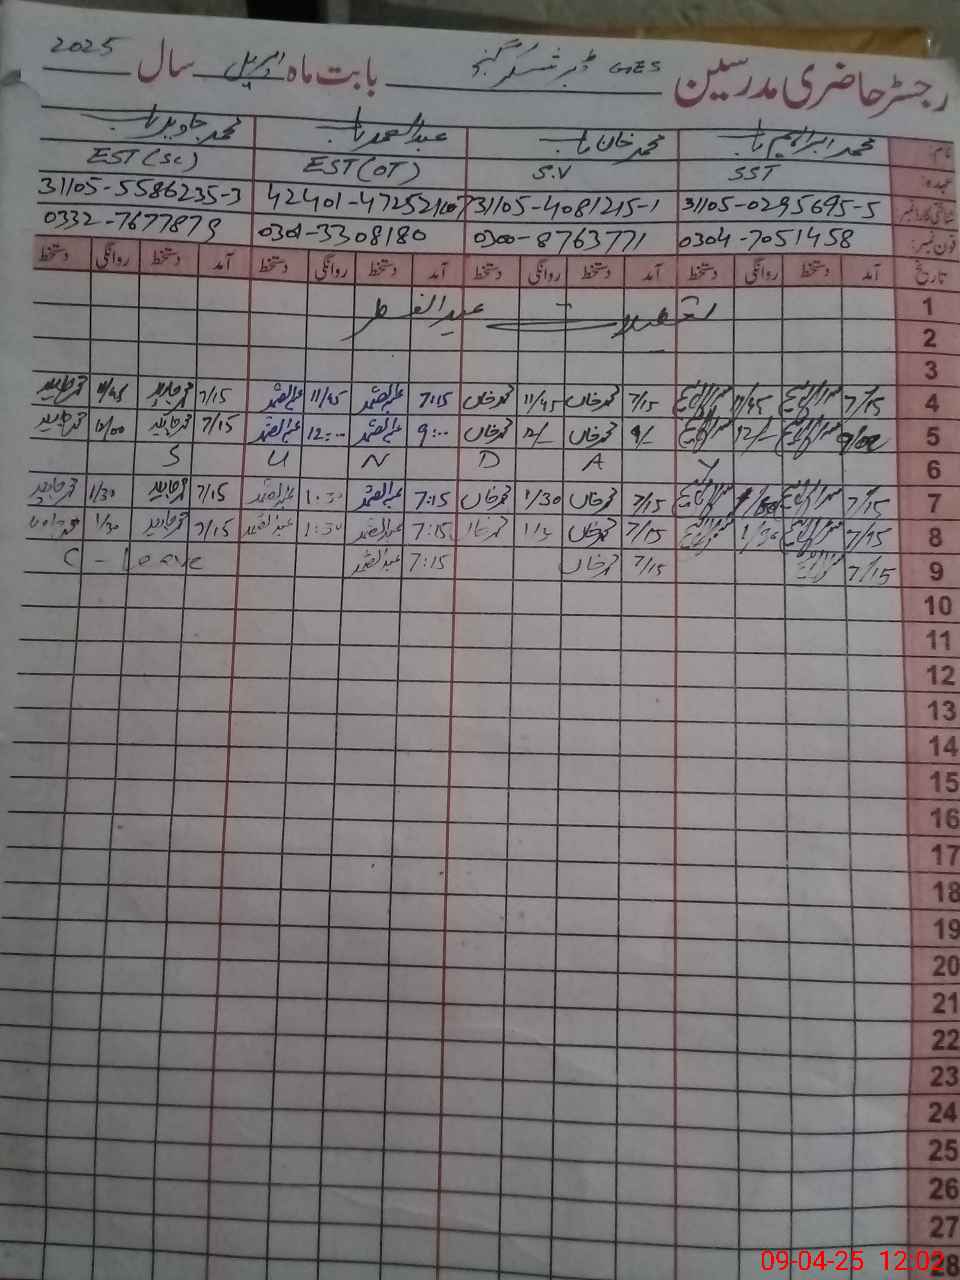 رجسٹر حاضری مدرسین GES بابت ماہ اپریل سال 2025
نام: محمد ابراہیم محمد خان عبدالصمد محمد جاوید
عہدہ: SST S.V EST(OT) EST(SC)
شناختی کارڈ نمبر 31105-0295695-5 31105-4081215-1 31105-5586235-3
فون نمبر: 0304-7051458 0300-8763771 0301-3308180 0332-7677879
تاریخ آمد دستخط روانگی دستخط آمد دستخط روانگی دستخط آمد دستخط روانگی دستخط آمد دستخط روانگی دستخط
1 تعطیلات عیدالفطر
2
3
4 7/15 11/45 7/15 محمد خاں 11/45 محمد خاں 7:15 عبدالصمد 11/45 عبدالصمد 7/15 محمد جاوید 11/45 محمد جاوید
5 9/00 12/- 9/- محمد خاں 12/- محمد خاں 9:00 عبدالصمد 12:00 عبدالصمد 7/15 محمد جاوید 12/00 محمد جاوید
6 S U N D A Y
7 7/15 7/15 محمد خاں 1/30 محمد خاں 7:15 عبدالصمد 1:30 عبدالصمد 7/15 محمد جاوید 1/30 محمد جاوید
8 7/15 1/30 7/15 محمد خاں محمد خاں 7:15 عبدالصمد 1:30 عبدالصمد 7/15 محمد جاوید 1/30 محمد جاوید
9 7/15 7/15 محمد خاں 7:15 عبدالصمد C - Leave
10
11
12
13
14
15
16
17
18
19
20
21
22
23
24
25
26
27
28
09-04-25 12:02